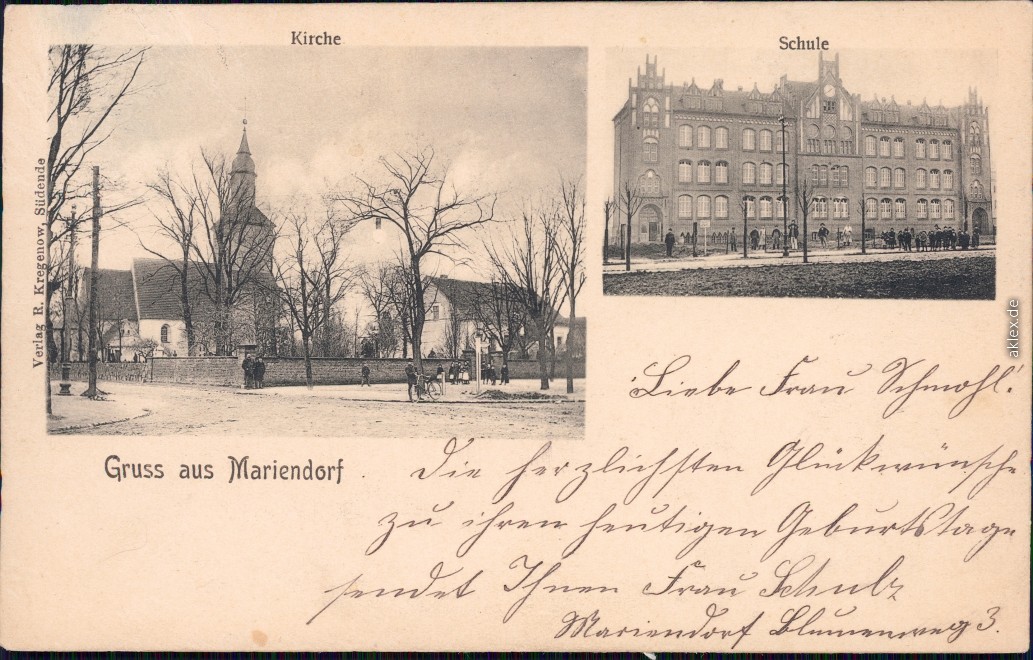 Kirche
Schule
Verlag R. Kregenow, Südende
Gruss aus Mariendorf
Liebe Frau Schmohl!
Die herzlichsten Glückwünsche
zu ihren heutigen Geburtstage
sendet Ihnen Frau Schulz
Mariendorf Blumenweg 3.
aklex.de